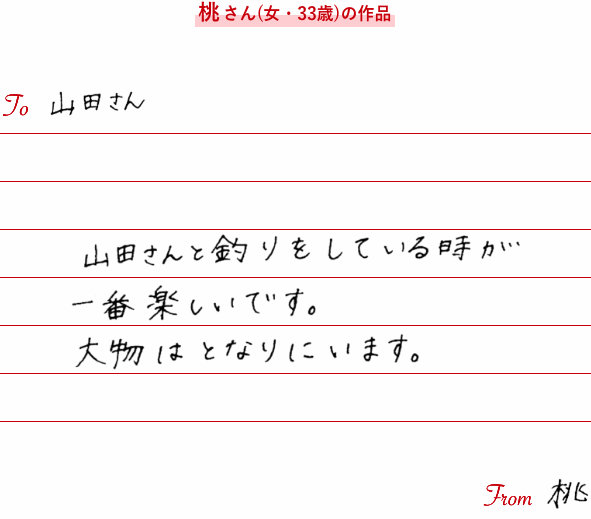 桃さん(女・33歳)の作品
To 山田さん
山田さんと釣りをしている時が
一番楽しいです。
大物はとなりにいます。
From 桃